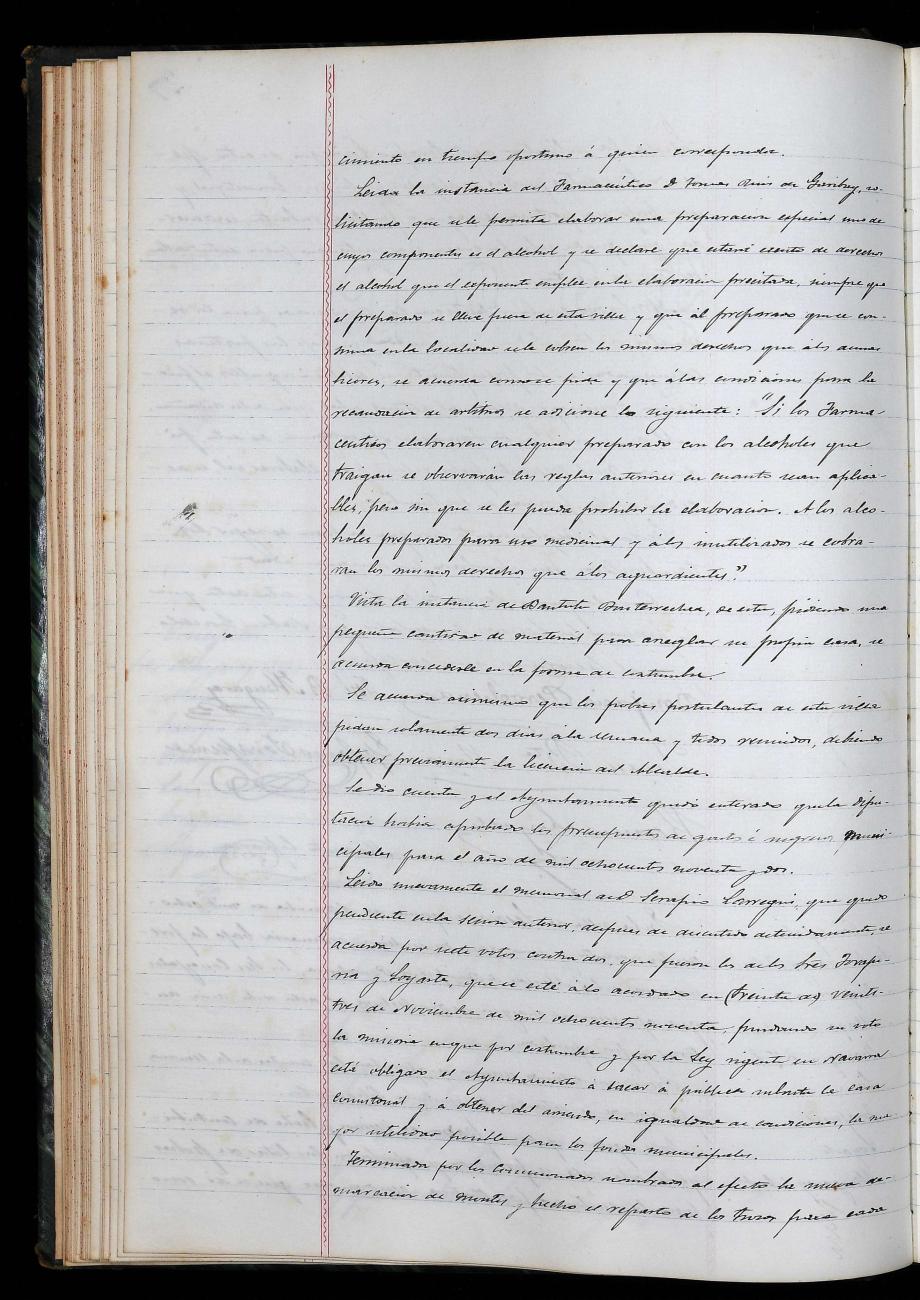 cimiento en tiempo oportuno á quien corresponda.
Leida la instancia del Farmacéutico D Tomas Ruis de Garibay, so-
licitando que se le permita elaborar una preparacion especial uno de
cuyos componentes es el alcohol y se declare que estará exento de derechos
el alcohol que el esponente emplee en la elaboracion precitada, siempre que
el preparado se lleve fuera de esta villa y que al preparado que se con-
suma en la localidad se le cobren los mismos derechos que á los demas
licores, se acuerda como se pide y que á las condiciones para la
recaudacion de arbitrios se adicione lo siguiente: "Si los Farma-
ceuticos elaboraren cualquier preparado con los alcoholes que
traigan se observarán las reglas anteriores en cuanto sean aplica-
bles, pero sin que se les pueda prohibir la elaboracion. A los alco-
holes preparados para uso medicinal y á los inutilizados se cobra-
ran los mismos derechos que á los aguardientes."
Vista la instancia de Basterrechea, de esta, pidiendo una
pequeña cantidad de material para arreglar su propia casa, se
acuerda concederle en la forma de costumbre.
Se acuerda asimismo que los pobres postulantes de esta villa
pidan solamente dos dias á la semana y todos reunidos, debiendo
obtener previamente la licencia del Alcalde.
Se dio cuenta y el Ayuntamiento quedó enterado que la Dipu-
tacion habia aprobado los presupuestos de gastos é ingresos muni-
cipales para el año de mil ochocientos noventa y dos.
Leido nuevamente el memorial de D Serafin Larregui, que quedó
pendiente en la sesion anterior, despues de discutido detenidamente, se
acuerda por siete votos contra dos, que fueron los de los Sres
y Goyarte, que se esté á lo acordado en (treinta de) veinti-
tres de Noviembre de mil ochocientos noventa, fundando su voto
la minoria en que por costumbre y por la Ley vigente en Navarra
está obligado el Ayuntamiento á sacar á pública subasta la casa
consistorial y á obtener del arriendo, en igualdad de condiciones, la ma
yor utilidad posible para los fondos municipales.
Terminada por los Comisionados nombrados al efecto la nueva de-
marcacion de montes y hecho el reparto de los trozos para cada